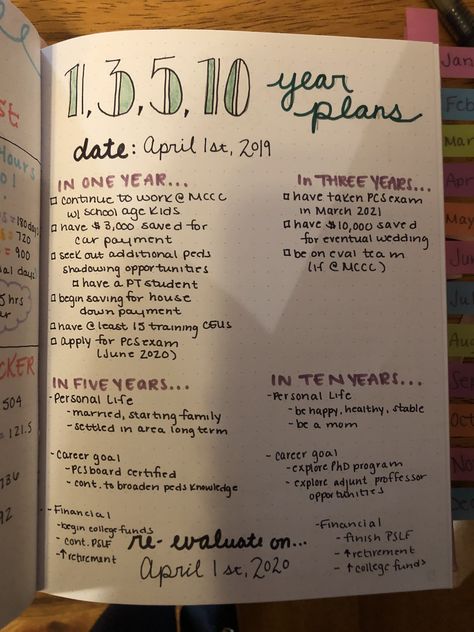 1, 3, 5, 10 year
plans
date: April 1st, 2019
IN ONE YEAR...
continue to work @ MCCC
w/ school age kids
have $3,000 saved for
car payment
seek out additional peds
shadowing opportunities
have a PT student
begin saving for house
down payment
have @ least 15 training CEUs
apply for PCS exam
(June 2020)
IN THREE YEARS...
have taken PCS exam
in March 2021
have $10,000 saved
for eventual wedding
be on eval team
(if @ MCCC)
IN FIVE YEARS...
-Personal Life
- married, starting family
- settled in area long term
- Career goal
- PCS board certified
- cont. to broaden peds knowledge
- Financial
- begin college funds
- cont. PSLF
- ↑ retirement
IN TEN YEARS...
-Personal Life
- be happy, healthy, stable
- be a mom
- career goal
- explore PhD program
- explore adjunt proffessor
opportunities
- Financial
- finish PSLF
- ↑ retirement
- ↑ college funds
re-evaluate on...
April 1st, 2020
Hours
= 180 days
= 720
= 900
hrs
CKER
504
= 121.5
736
92
Jan
Feb
Mar
Apr
May
Jun
Aug
Oct